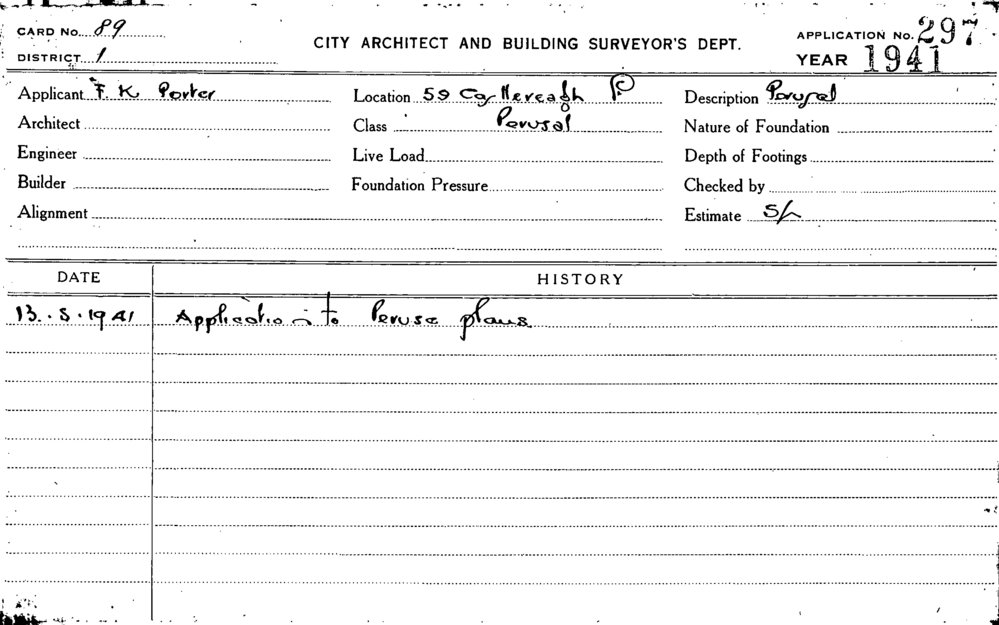 CARD No. 89
CITY ARCHITECT AND BUILDING SURVEYOR'S DEPT.
APPLICATION No. 297
DISTRICT 1
YEAR 1941
Applicant F. K. Porter
Location 59 Castlereagh
Description Perusal
Architect
Class Perusal
Nature of Foundation
Engineer
Live Load
Depth of Footings
Builder
Foundation Pressure
Checked by
Alignment
Estimate 5/-
DATE
HISTORY
13.5.1941 Application to Peruse plans